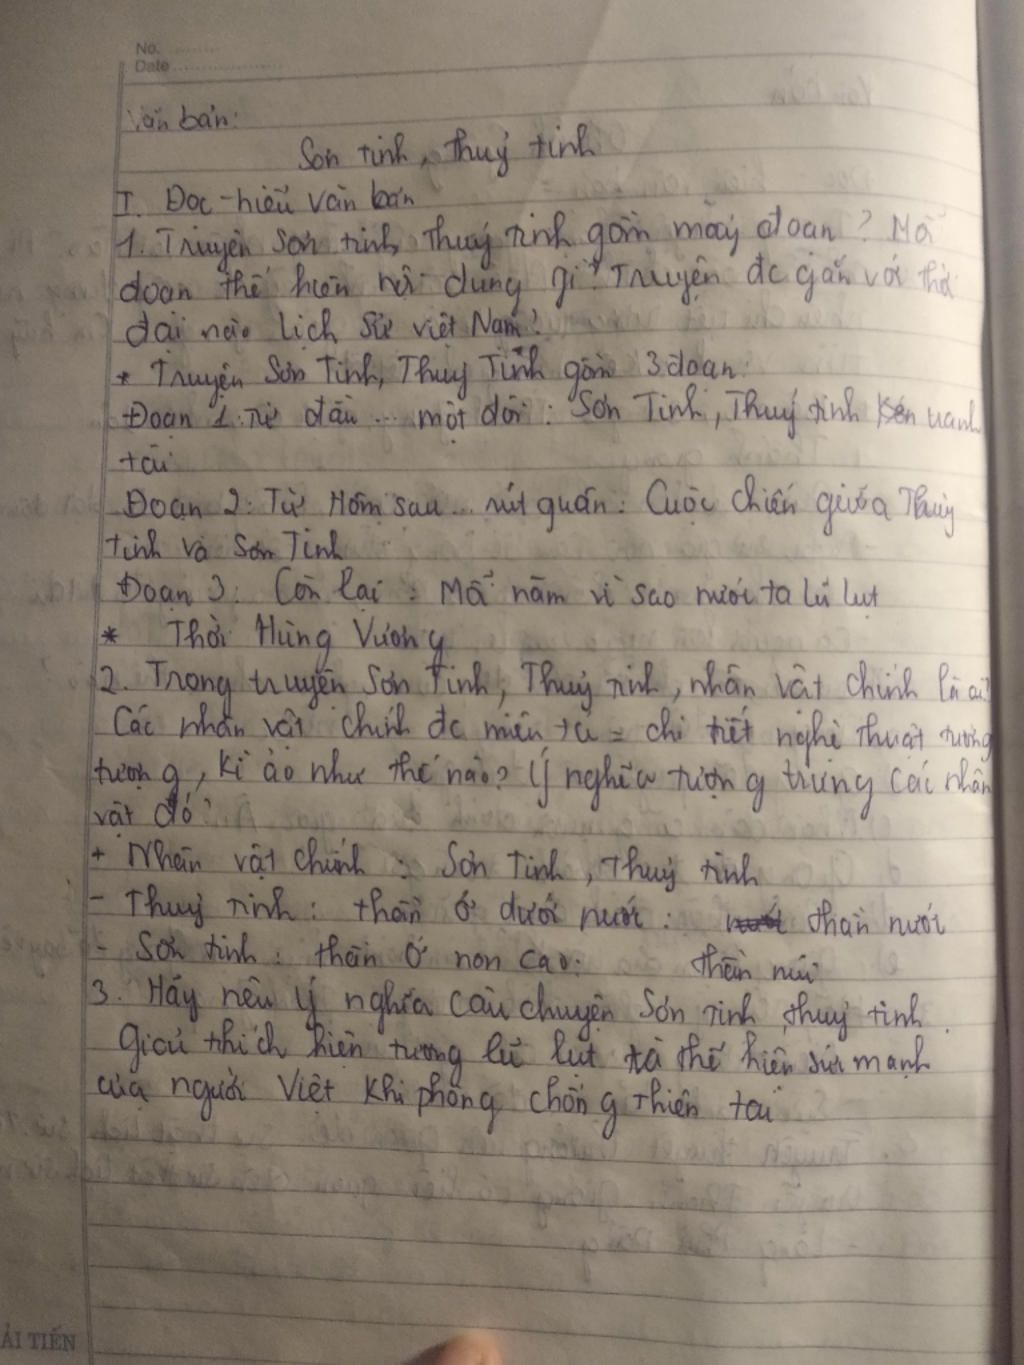 No. ..........
Date ....................
Văn bản:
Sơn tinh, Thuỷ tinh
I. Đọc - hiểu văn bản
1. Truyện Sơn tinh, Thuỷ tinh gồm mấy đoạn? Mỗi
đoạn thể hiện nội dung gì? Truyện đc gắn với thời
đại nào lịch sử việt Nam?
* Truyện Sơn Tinh, Thuỷ Tinh gồm 3 đoạn:
Đoạn 1: Từ đầu ... một đôi: Sơn Tinh, Thuỷ tinh
tài
Đoạn 2: Từ Hôm sau ... rút quân: Cuộc chiến giữa Thuỷ
tinh và Sơn Tinh
Đoạn 3: Còn lại: Mỗi năm vì sao nước ta lũ lụt
* Thời Hùng Vương
2. Trong truyện Sơn Tinh, Thuỷ tinh, nhân vật chính là ai?
Các nhân vật chính đc miêu tả = chi tiết nghệ thuật tưởng
tượng, kì ảo như thế nào? Ý nghĩa tượng trưng các nhân
vật đó?
+ Nhân vật chính: Sơn Tinh, Thuỷ tinh
- Thuỷ tinh: thần ở dưới nước: thần nước
- Sơn tinh: thần ở non cao: thần núi
3. Hãy nêu ý nghĩa câu chuyện Sơn tinh, thuỷ tinh.
Giải thích hiện tượng lũ lụt và thể hiện sức mạnh
của người Việt khi phòng chống thiên tai
ẢI TIẾN